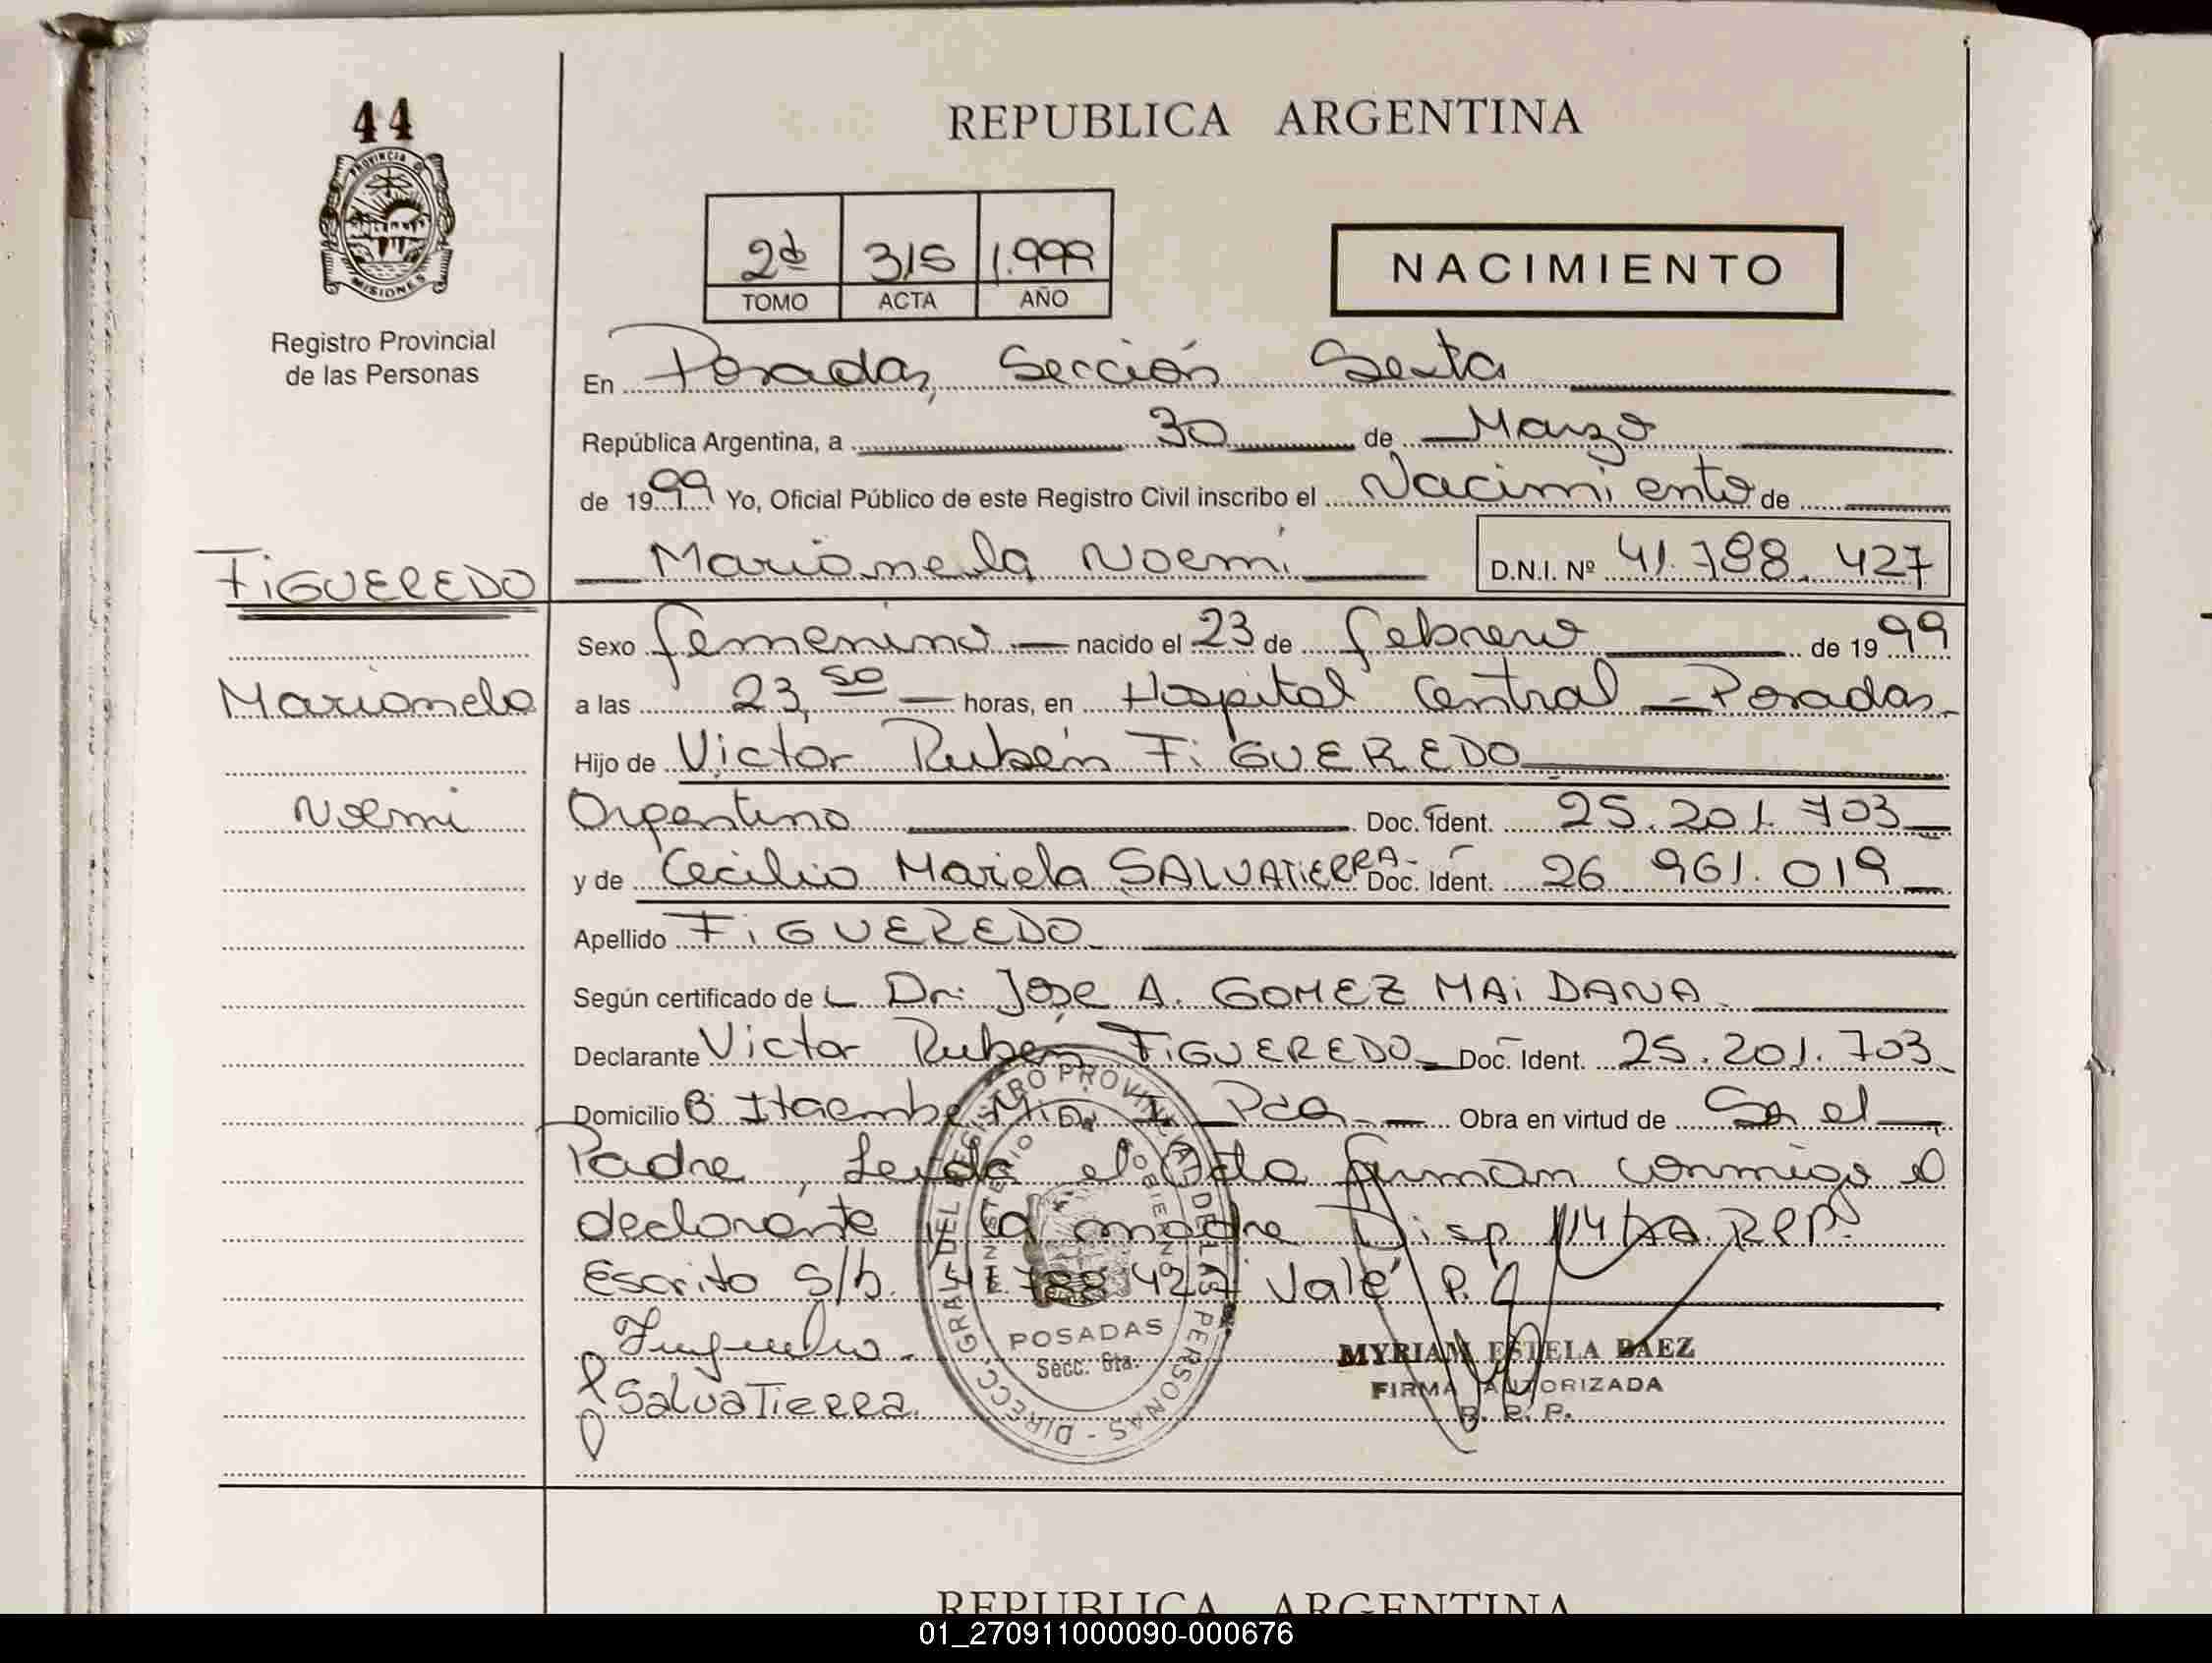 44
PROVINCIA DE
MISIONES
Registro Provincial
de las Personas
REPUBLICA ARGENTINA
2d 315 1.999
TOMO ACTA AÑO
NACIMIENTO
En Posadas, Sección Sexta
República Argentina, a 30 de Marzo
de 1999 Yo, Oficial Público de este Registro Civil inscribo el Nacimiento de
FiGUEREDO
Marianela Noemi D.N.I. Nº 41.788.427
Sexo femenino nacido el 23 de febrero de 1999
Marianela
a las 23,50 horas, en Hospital Central - Posadas
Hijo de Victor Rubén FiGUEREDO
Noemi
Argentino Doc. Ident. 25.201.703
y de Cecilia Mariela SALVATiERRA- Doc. Ident. 26.961.019
Apellido FiGUEREDO
Según certificado de Dr. Jose A. GOMEZ MAiDANA
Declarante Victor Rubén FiGUEREDO Doc. Ident. 25.201.703
Domicilio B Itaembe Mini Pdas Obra en virtud de Ser el
Padre, Leida el Acta firman conmigo el
declarante y la madre Disp
Escrito s/b. 41.788.427 Vale
SalvaTierra
DIRECC. GRAL. DEL REGISTRO PROVINCIAL DE LAS PERSONAS
MINISTERIO GOBIERNO
POSADAS
Secc. 6ta.
MYRIAM ESTELA BAEZ
FIRMA AUTORIZADA
R. P. P.
REPUBLICA ARGENTINA
01_270911000090-000676